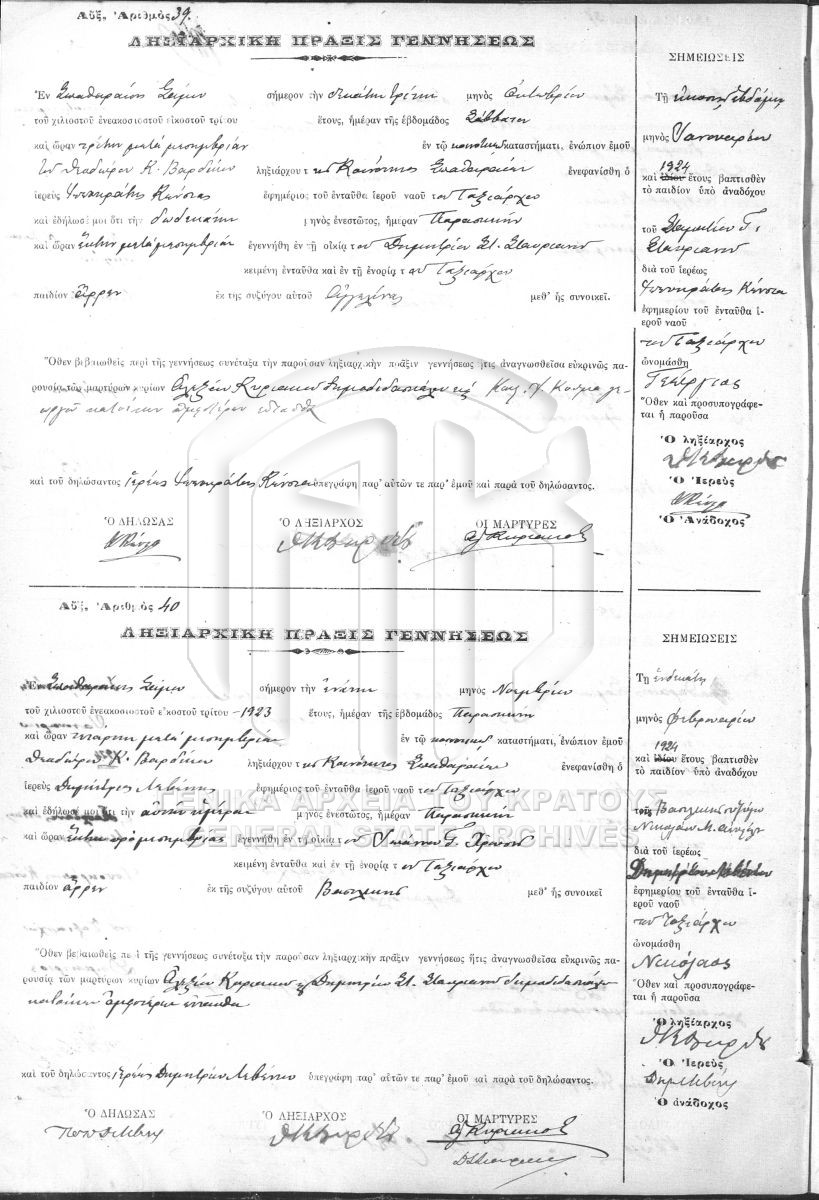 Αὔξ. Ἀριθμὸς 39.
ΛΗΞΙΑΡΧΙΚΗ ΠΡΑΞΙΣ ΓΕΝΝΗΣΕΩΣ
Ἐν Σπαθαραίοις Σάμου σήμερον τὴν δεκάτην τρίτην μηνὸς Ὀκτωβρίου
τοῦ χιλιοστοῦ ἐνεακοσιοστοῦ εἰκοστοῦ τρίτου ἔτους, ἡμέραν τῆς ἑβδομάδος Σάββατον
καὶ ὥραν τρίτην μετὰ μεσημβρίαν ἐν τῷ κοινοτικῷ καταστήματι, ἐνώπιον ἐμοῦ
τοῦ Θεοδώρου Κ. Βαρδάκου ληξιάρχου τῆς Κοινότητος Σπαθαραίων ἐνεφανίσθη ὁ
ἱερεὺς Κώνστας ἐφημέριος τοῦ ἐνταῦθα ἱεροῦ ναοῦ τοῦ Ταξιάρχου
καὶ ἐδήλωσέ μοι ὅτι τὴν δωδεκάτην μηνὸς ἐνεστῶτος, ἡμέραν Παρασκευὴν
καὶ ὥραν ἕκτην μετὰ μεσημβρίαν ἐγεννήθη ἐν τῇ οἰκίᾳ τοῦ Δημητρίου Στ. Σταυριανοῦ
κειμένη ἐνταῦθα καὶ ἐν τῇ ἐνορίᾳ τοῦ Ταξιάρχου
παιδίον ἄρρεν ἐκ τῆς συζύγου αὐτοῦ Ἀγγελίνας μεθ' ἧς συνοικεῖ.
Ὅθεν βεβαιωθεὶς περὶ τῆς γεννήσεως συνέταξα τὴν παροῦσαν ληξιαρχικὴν πρᾶξιν γεννήσεως ἥτις ἀναγνωσθεῖσα εὐκρινῶς πα-
ρουσίᾳ τῶν μαρτύρων κυρίων Ἀλεξίου Κυριακοῦ δημοδιδασκάλου
κατοίκων ἀμφοτέρων ἐνταῦθα
καὶ τοῦ δηλώσαντος ἱερέως Κώνστα ὑπεγράφη παρ' αὐτῶν τε παρ' ἐμοῦ καὶ παρὰ τοῦ δηλώσαντος.
Ὁ ΔΗΛΩΣΑΣ Ὁ ΛΗΞΙΑΡΧΟΣ ΟΙ ΜΑΡΤΥΡΕΣ
Αλ Κυριακοῦ
ΣΗΜΕΙΩΣΕΙΣ
Τῇ εἰκοστῇ ἑβδόμῃ
μηνὸς Ἰανουαρίου
1924
καὶ ἰδίου ἔτους βαπτισθὲν
τὸ παιδίον ὑπὸ ἀναδόχου
τοῦ Σταματίου Γ.
Σταυριανοῦ
διὰ τοῦ ἱερέως
Κώνστα
ἐφημερίου τοῦ ἐνταῦθα ἱ-
εροῦ ναοῦ
τοῦ Ταξιάρχου
ὠνομάσθη
Γεώργιος
Ὅθεν καὶ προσυπογράφε-
ται ἡ παροῦσα
Ὁ ληξίαρχος
Ὁ Ἱερεὺς
Ὁ Ἀνάδοχος
Αὔξ. Ἀριθμὸς 40
ΛΗΞΙΑΡΧΙΚΗ ΠΡΑΞΙΣ ΓΕΝΝΗΣΕΩΣ
Ἐν Σπαθαραίοις Σάμου σήμερον τὴν ἐνάτην μηνὸς Νοεμβρίου
τοῦ χιλιοστοῦ ἐνεακοσιοστοῦ εἰκοστοῦ τρίτου - 1923 ἔτους, ἡμέραν τῆς ἑβδομάδος Παρασκευὴν
καὶ ὥραν τετάρτην μετὰ μεσημβρίαν ἐν τῷ κοινοτικῷ καταστήματι, ἐνώπιον ἐμοῦ
Θεοδώρου Κ. Βαρδάκου ληξιάρχου τῆς Κοινότητος Σπαθαραίων ἐνεφανίσθη ὁ
ἱερεὺς Δημήτριος Λεβέντης ἐφημέριος τοῦ ἐνταῦθα ἱεροῦ ναοῦ τοῦ Ταξιάρχου
καὶ ἐδήλωσέ μοι ὅτι τὴν αὐτὴν ἡμέραν μηνὸς ἐνεστῶτος, ἡμέραν Παρασκευὴν
καὶ ὥραν ἕκτην πρὸ μεσημβρίας ἐγεννήθη ἐν τῇ οἰκίᾳ τοῦ Ἰωάννου Γ. Χρυσοῦ
κειμένη ἐνταῦθα καὶ ἐν τῇ ἐνορίᾳ τοῦ Ταξιάρχου
παιδίον ἄρρεν ἐκ τῆς συζύγου αὐτοῦ Βασιλικῆς μεθ' ἧς συνοικεῖ
Ὅθεν βεβαιωθεὶς περὶ τῆς γεννήσεως συνέταξα τὴν παροῦσαν ληξιαρχικὴν πρᾶξιν γεννήσεως ἥτις ἀναγνωσθεῖσα εὐκρινῶς πα-
ρουσίᾳ τῶν μαρτύρων κυρίων Ἀλεξίου Κυριακοῦ & Δημητρίου Στ. Σταυριανοῦ δημοδιδασκάλου
κατοίκων ἀμφοτέρων ἐνταῦθα
καὶ τοῦ δηλώσαντος ἱερέως Δημητρίου Λεβέντου ὑπεγράφη παρ' αὐτῶν τε παρ' ἐμοῦ καὶ παρὰ τοῦ δηλώσαντος.
Ὁ ΔΗΛΩΣΑΣ Ὁ ΛΗΞΙΑΡΧΟΣ ΟΙ ΜΑΡΤΥΡΕΣ
Αλ Κυριακοῦ
ΣΗΜΕΙΩΣΕΙΣ
Τῇ ἑνδεκάτῃ
μηνὸς Φεβρουαρίου
1924
καὶ ἰδίου ἔτους βαπτισθὲν
τὸ παιδίον ὑπὸ ἀναδόχου
τῆς Βασιλικῆς συζύγου
Νικολάου Μ.
διὰ τοῦ ἱερέως
Δημητρίου Λεβέντου
ἐφημερίου τοῦ ἐνταῦθα ἱ-
εροῦ ναοῦ
τοῦ Ταξιάρχου
ὠνομάσθη
Νικόλαος
Ὅθεν καὶ προσυπογράφε-
ται ἡ παροῦσα
Ὁ ληξίαρχος
Ὁ Ἱερεὺς
Ὁ ἀνάδοχος
ΓΕΝΙΚΑ ΑΡΧΕΙΑ ΤΟΥ ΚΡΑΤΟΥΣ
GENERAL STATE ARCHIVES